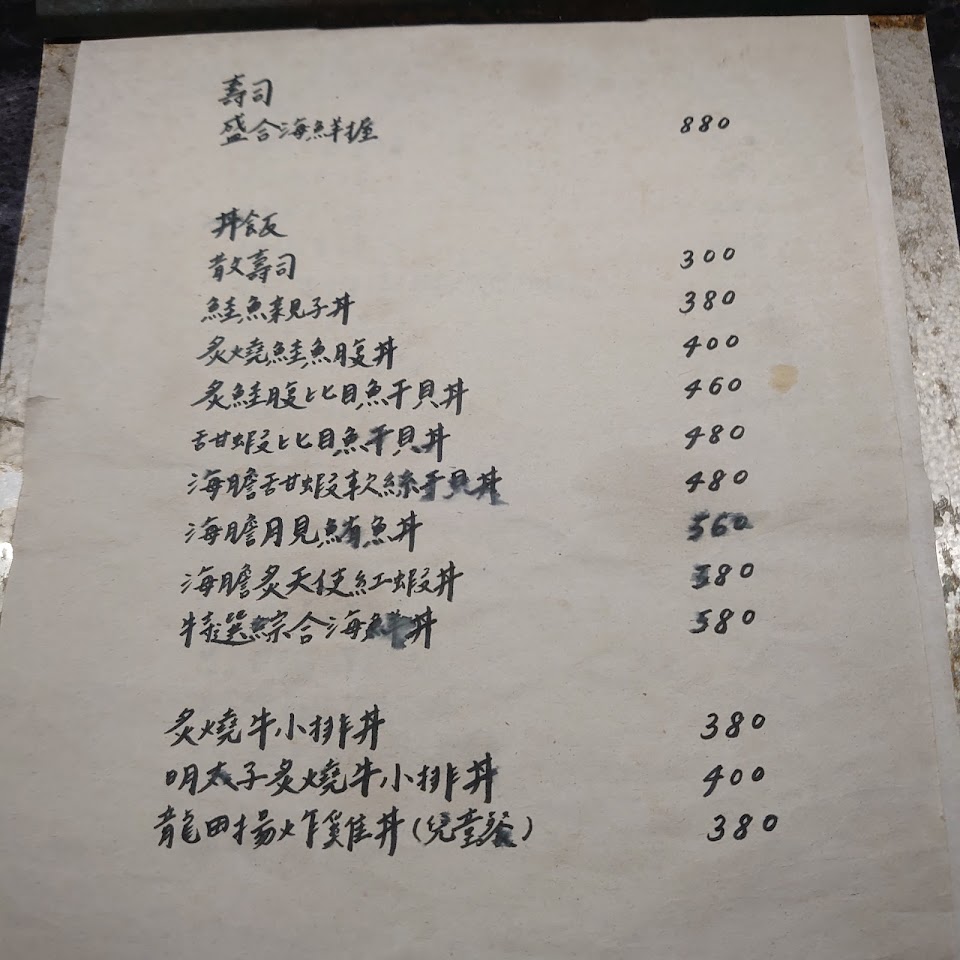 壽司
盛合海鮮握 880
丼飯
散壽司 300
鮭魚親子丼 380
炙燒鮭魚腹丼 400
炙鮭腹比目魚干貝丼 460
甜蝦比目魚干貝丼 480
海膽甜蝦軟絲干貝丼 480
海膽月見鮪魚丼 560
海膽炙天使紅蝦丼 580
特選綜合海鮮丼 580
炙燒牛小排丼 380
明太子炙燒牛小排丼 400
龍田揚炸雞丼(兒童餐) 380